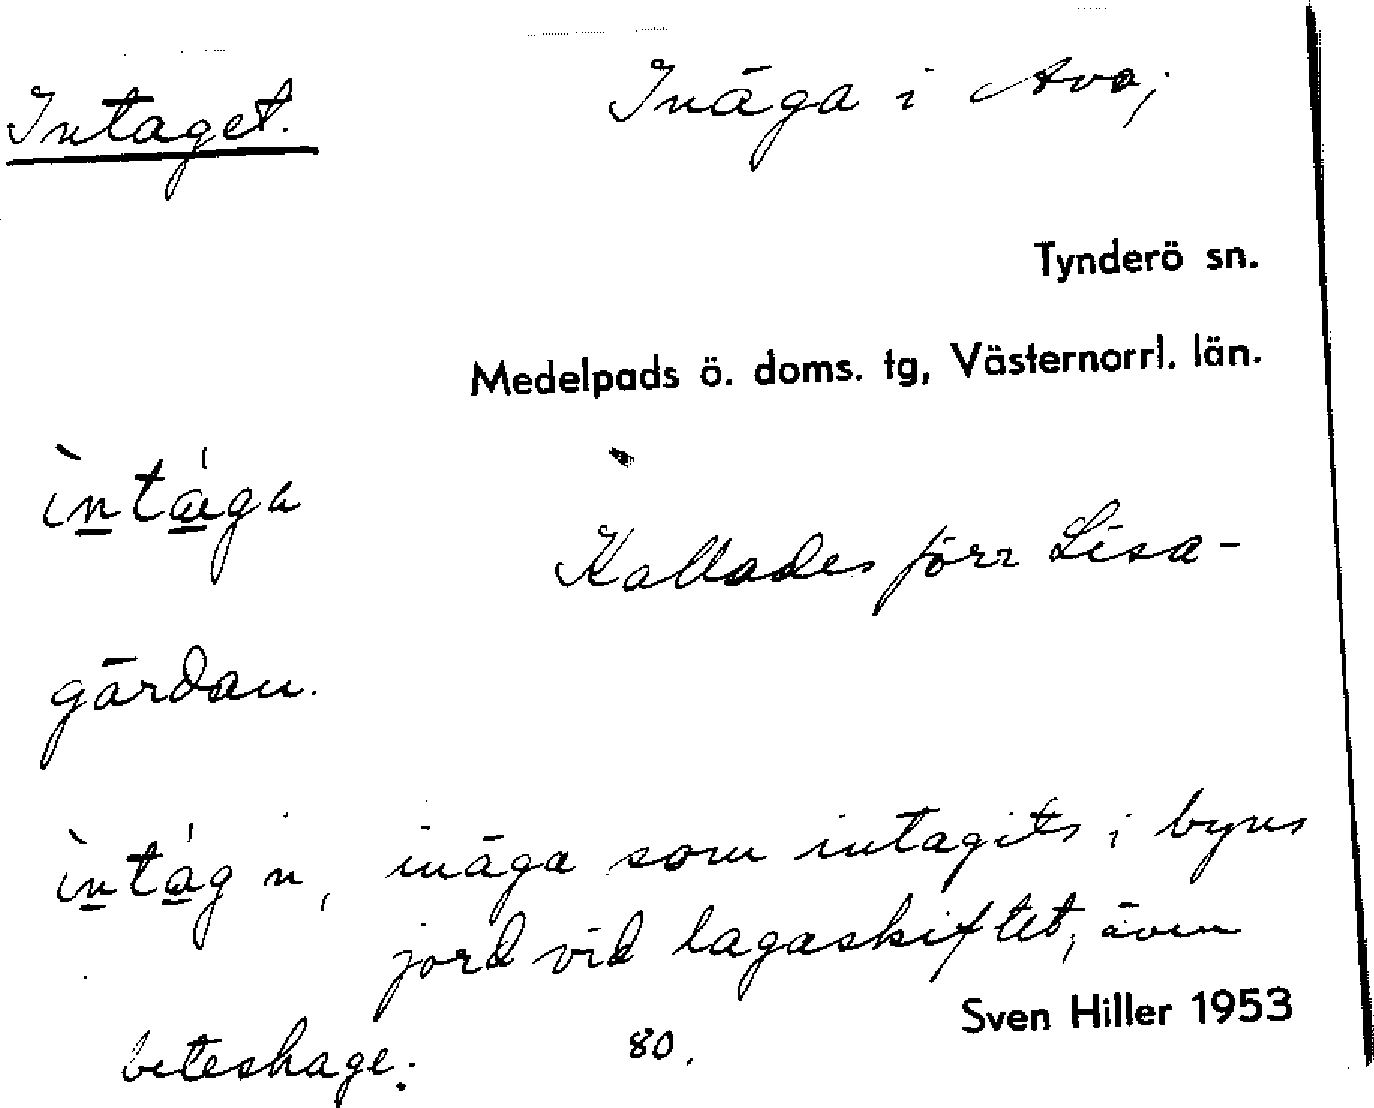 Intaget. Inäga i Ava;
Tynderö sn.
Medelpads ö. doms. tg, Västernorrl. län.
ìntá̤ga
Kallades förr Lisa-
gärdan.
ìntág n, inäga som intagits i byns
jord vid lagaskiftet, även
beteshage. 80.
Sven Hiller 1953